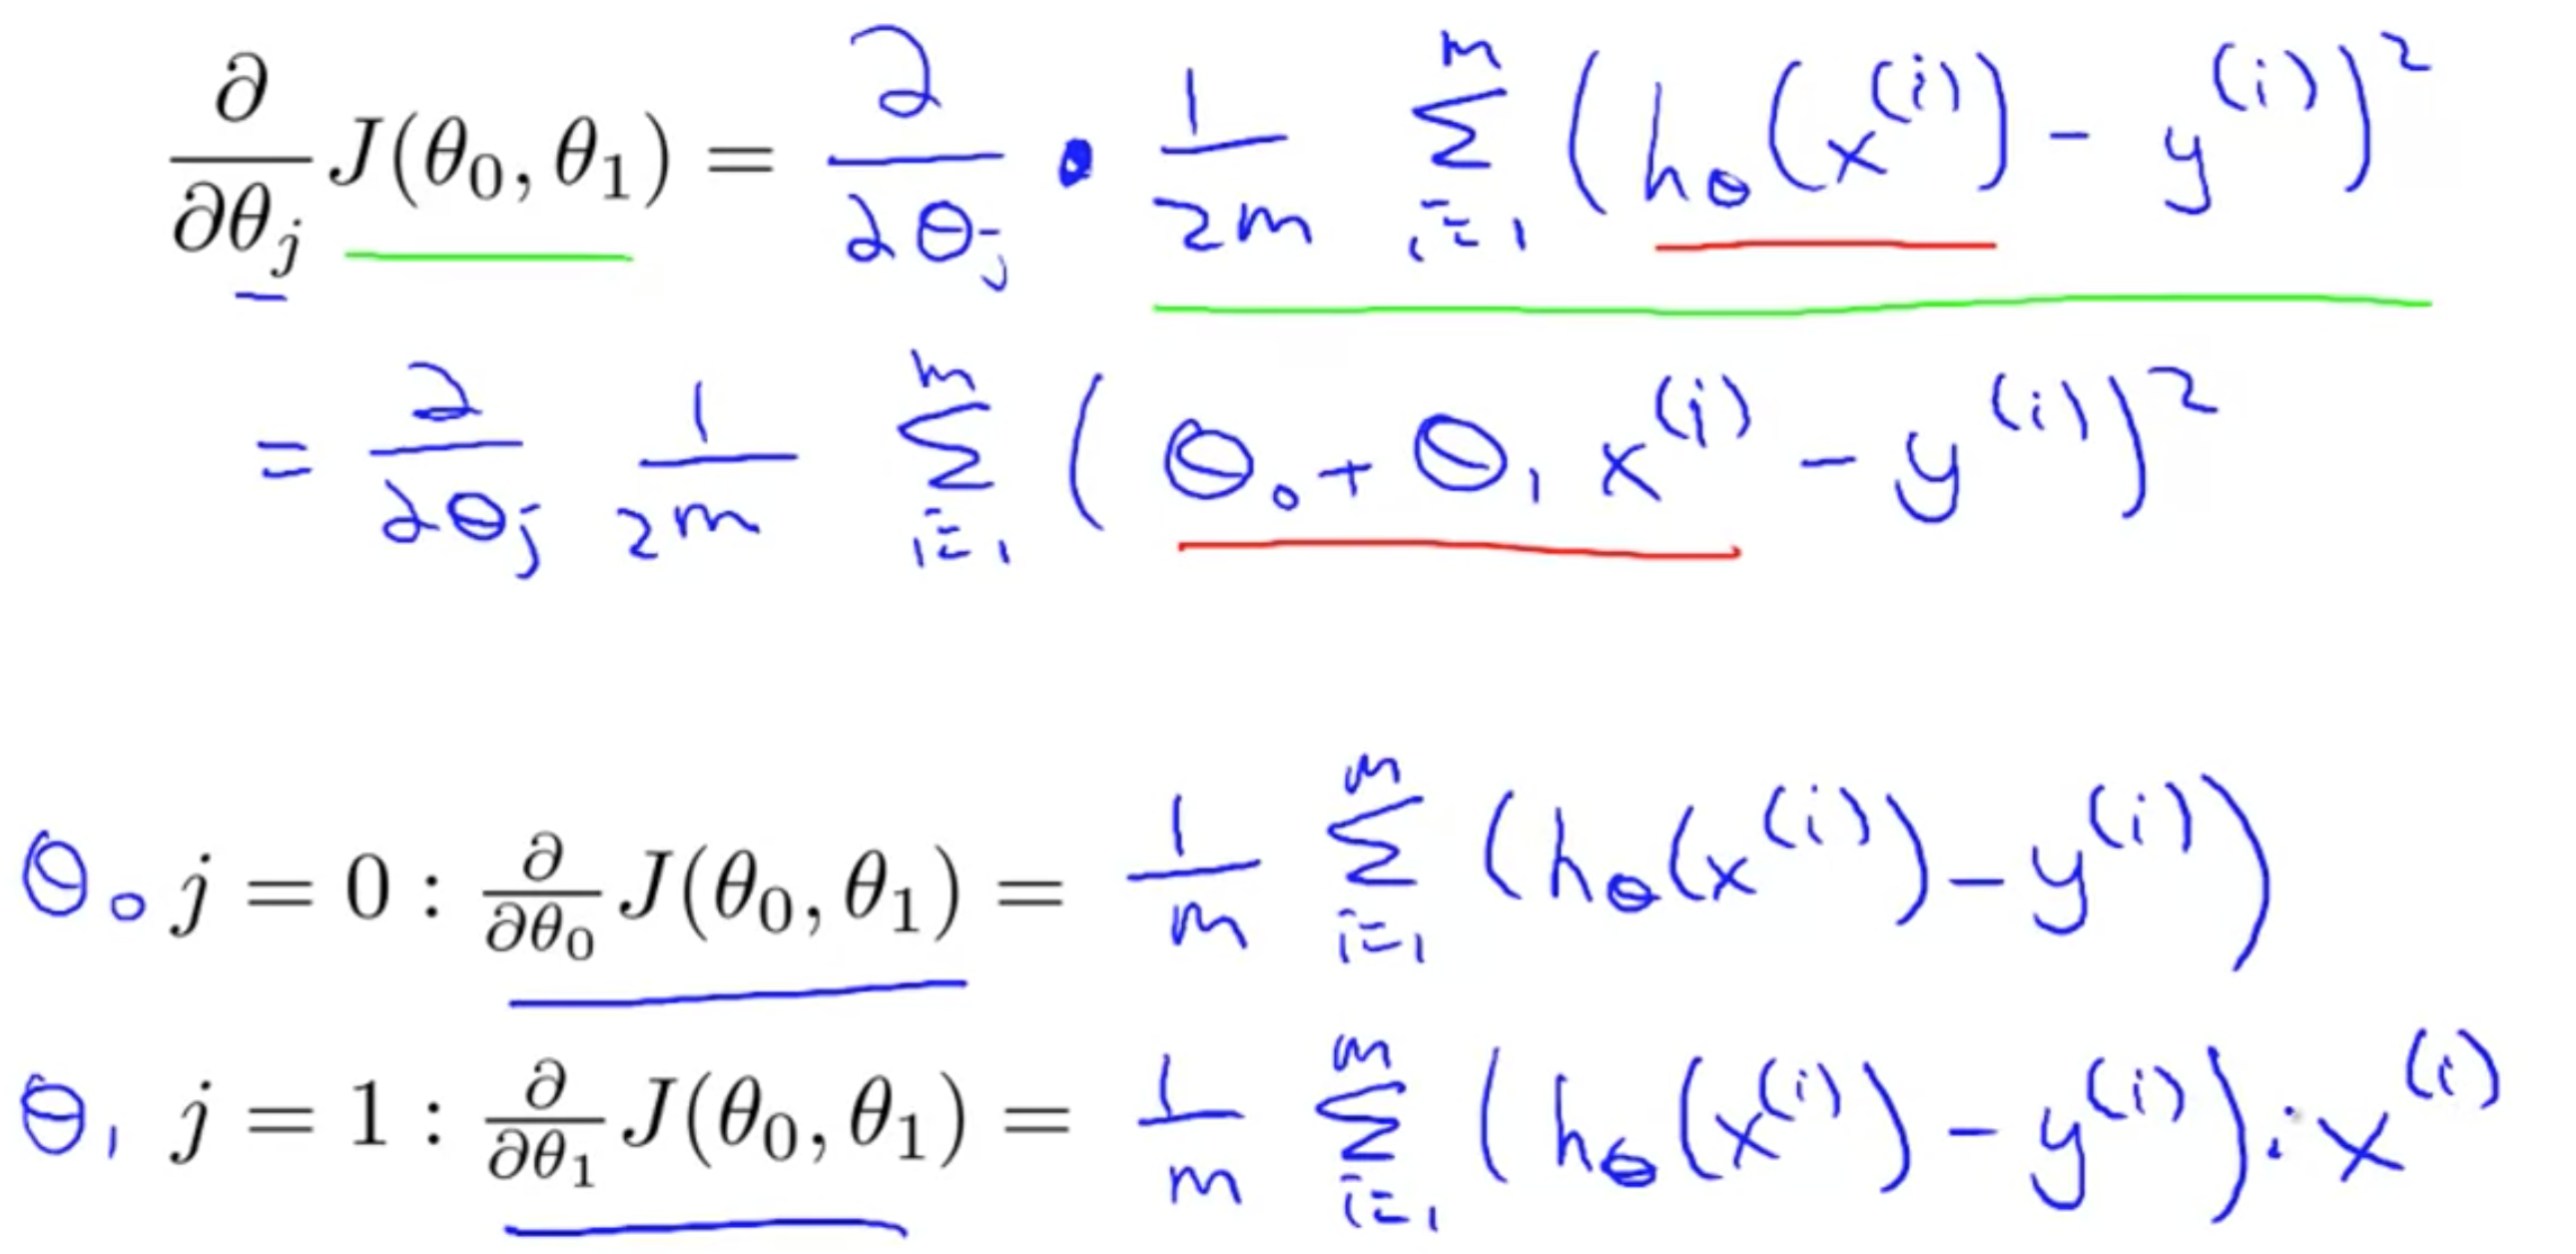 ∂/∂θ_j J(θ_0, θ_1) = ∂/∂θ_j · 1/2m ∑_{i=1}^{m} (h_θ(x^{(i)}) - y^{(i)})^2
= ∂/∂θ_j 1/2m ∑_{i=1}^{m} (θ_0 + θ_1 x^{(i)} - y^{(i)})^2
θ_0 j = 0 : ∂/∂θ_0 J(θ_0, θ_1) = 1/m ∑_{i=1}^{m} (h_θ(x^{(i)}) - y^{(i)})
θ_1 j = 1 : ∂/∂θ_1 J(θ_0, θ_1) = 1/m ∑_{i=1}^{m} (h_θ(x^{(i)}) - y^{(i)}) · x^{(i)}